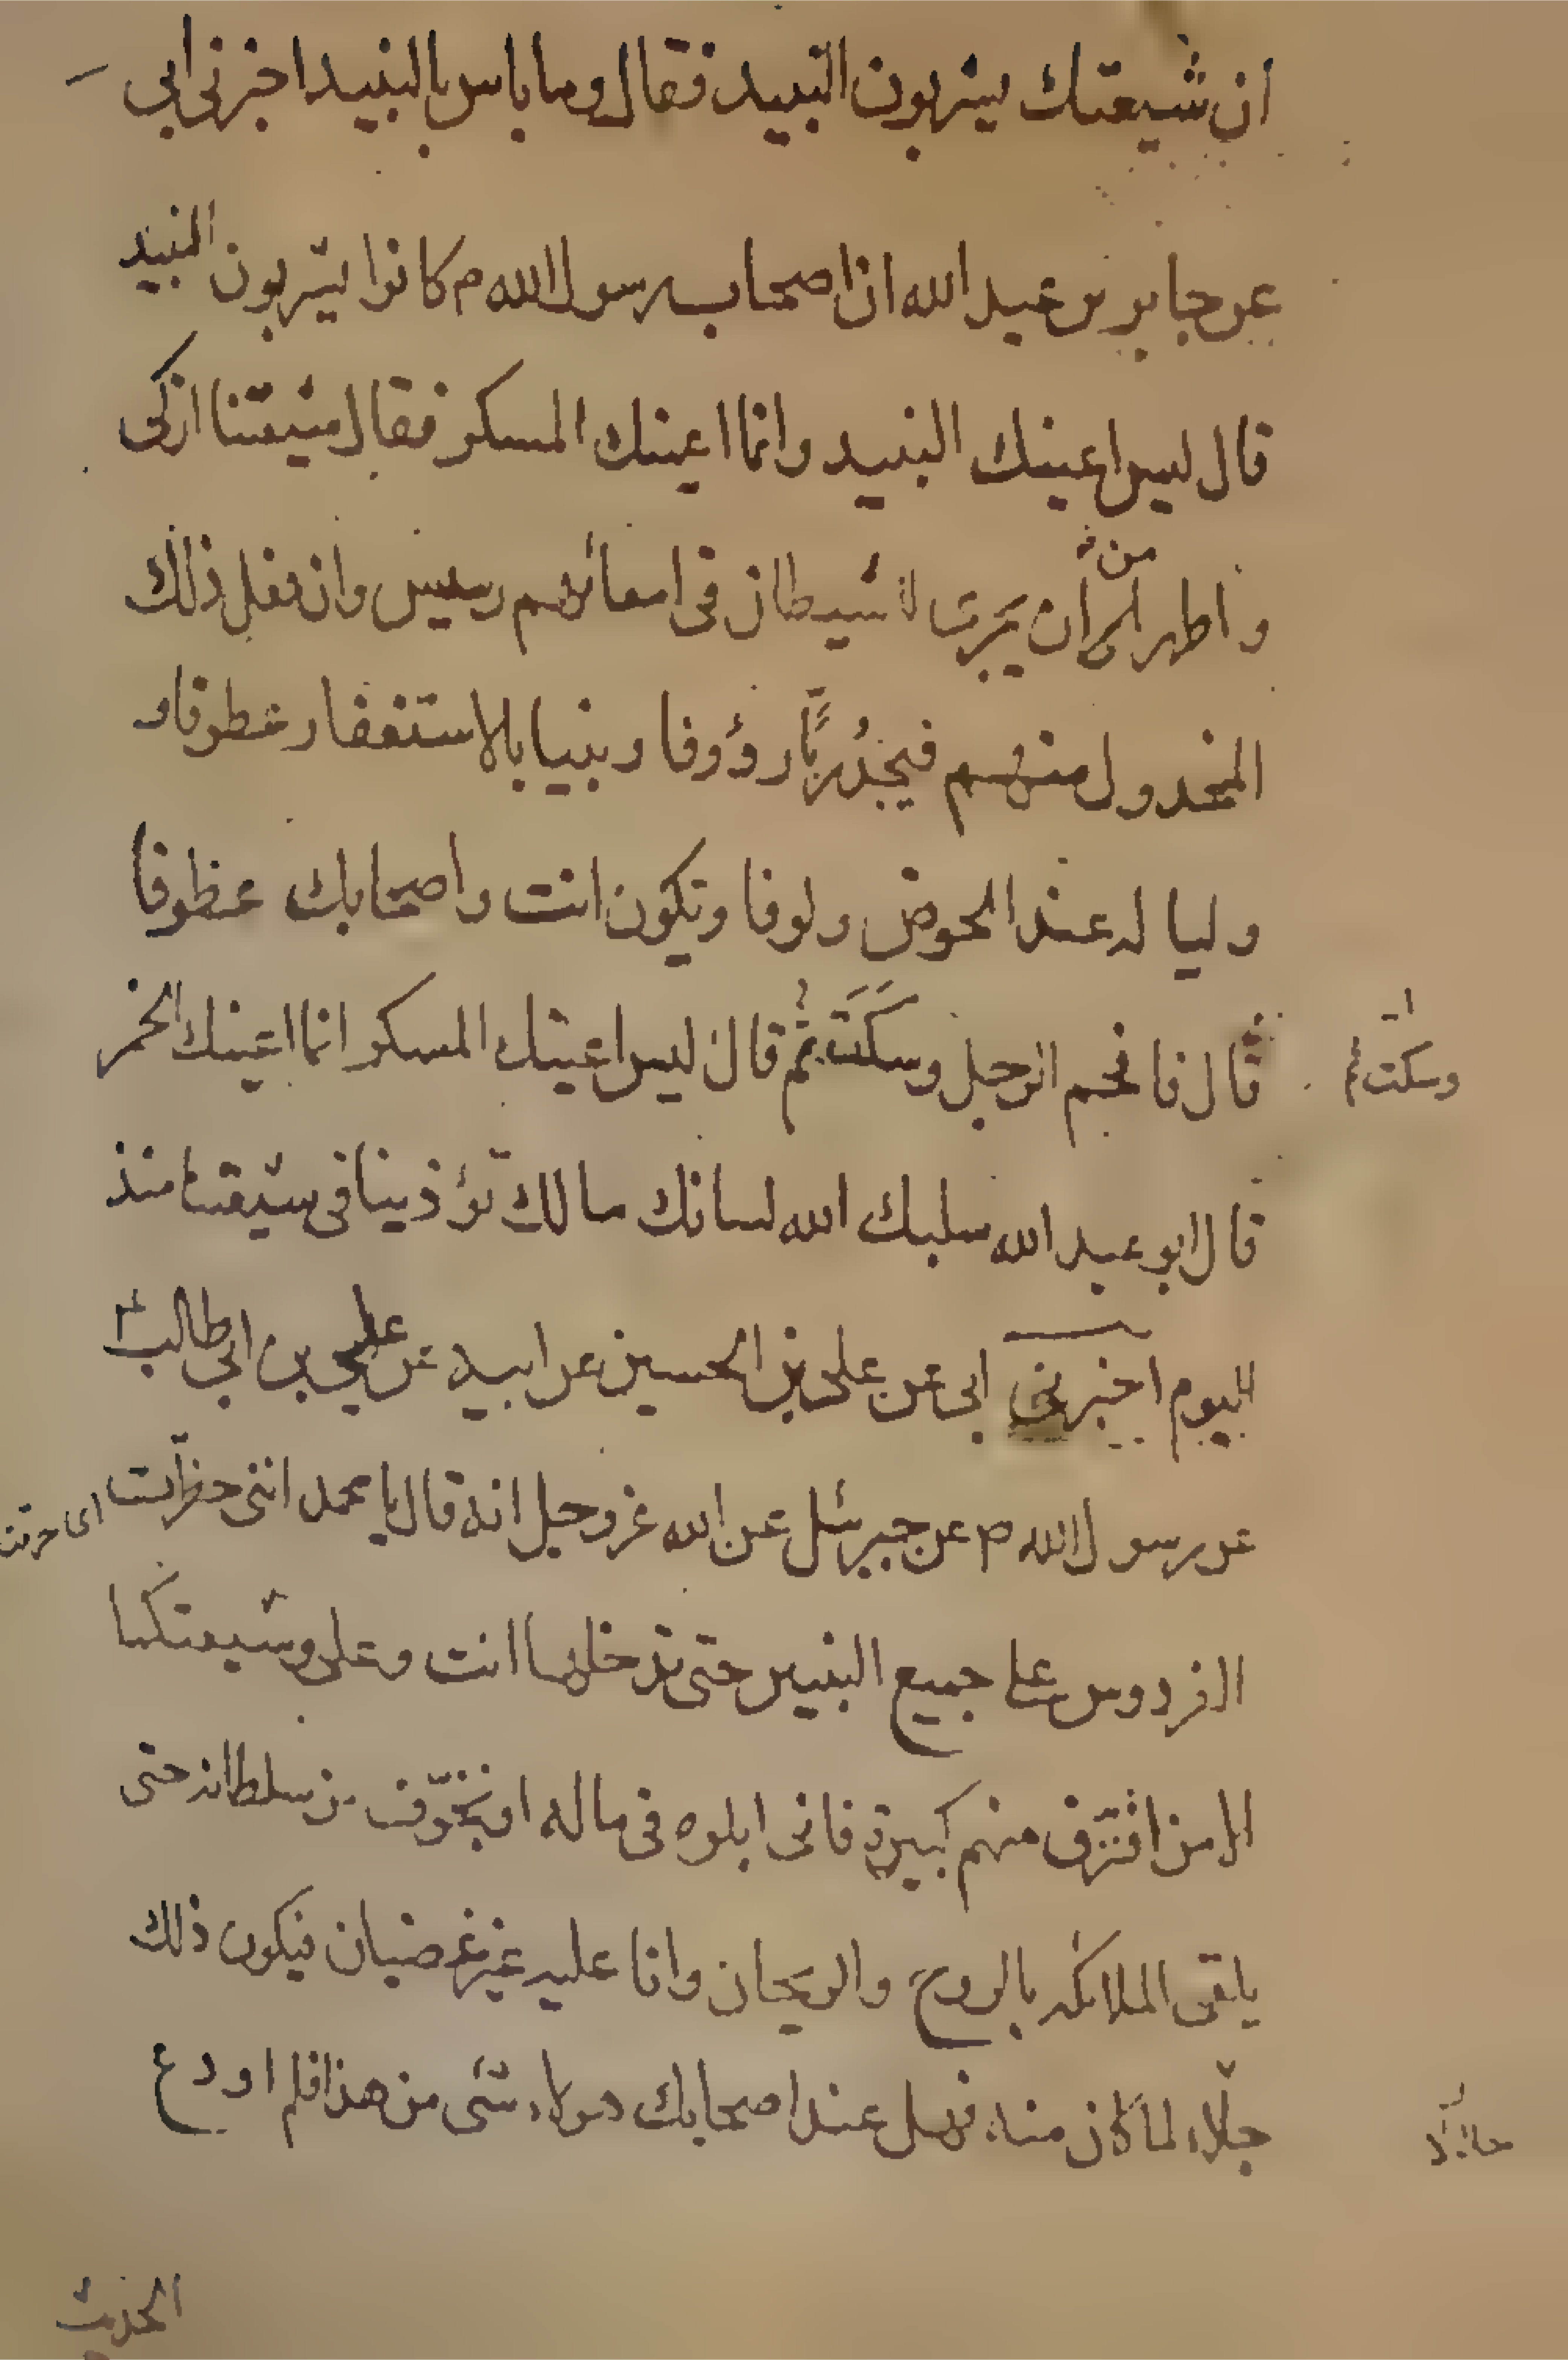 ان شيعتك يشربون النبيد فقال وما باس بالنبيد اخبرنى ابي
عن جابر بن عبد الله ان اصحاب رسول الله ص كانوا يشربون النبيد
قال ليس اعينك النبيد وانما اعينك المسكر فقال شيعتنا ازكى
و اطهر من ان يجرى للشيطان فى امعائهم رسيس وان فعل ذلك
المخدول منهم فيجد ربًّا رؤوفا ونبيا بالاستغفار عطوفا و
وليا له عند الحوض ولوفا وتكون انت واصحابك عطوفا
قال فافحم الرجل وسكت ثم قال ليس اعينك المسكر انما اعينك الخمر
وسكت ثم
قال ابو عبد الله سلبك الله لسانك مالك تؤذينا فى شيعتنا منذ
اليوم اخبرنى ابى عن على بن الحسين عن ابيه عن علي بن ابي طالب ع
عن رسول الله ص عن جبرئيل عن الله عز وجل انه قال يا محمد اننى حظرت
اى حرمت
الفردوس على جميع النبيين حتى تدخلها انت وعلى وشيعتكما
الا من اقترف منهم كبيرة فانى ابلوه فى ماله او بخوف من سلطانه حتى
يلقى الملائكه بالروح والريحان وانا عليه غير غضبان فيكون ذلك
جلاء لما كان منه فهل عند اصحابك هولاء شى من هذا فلم او دع
الحديث